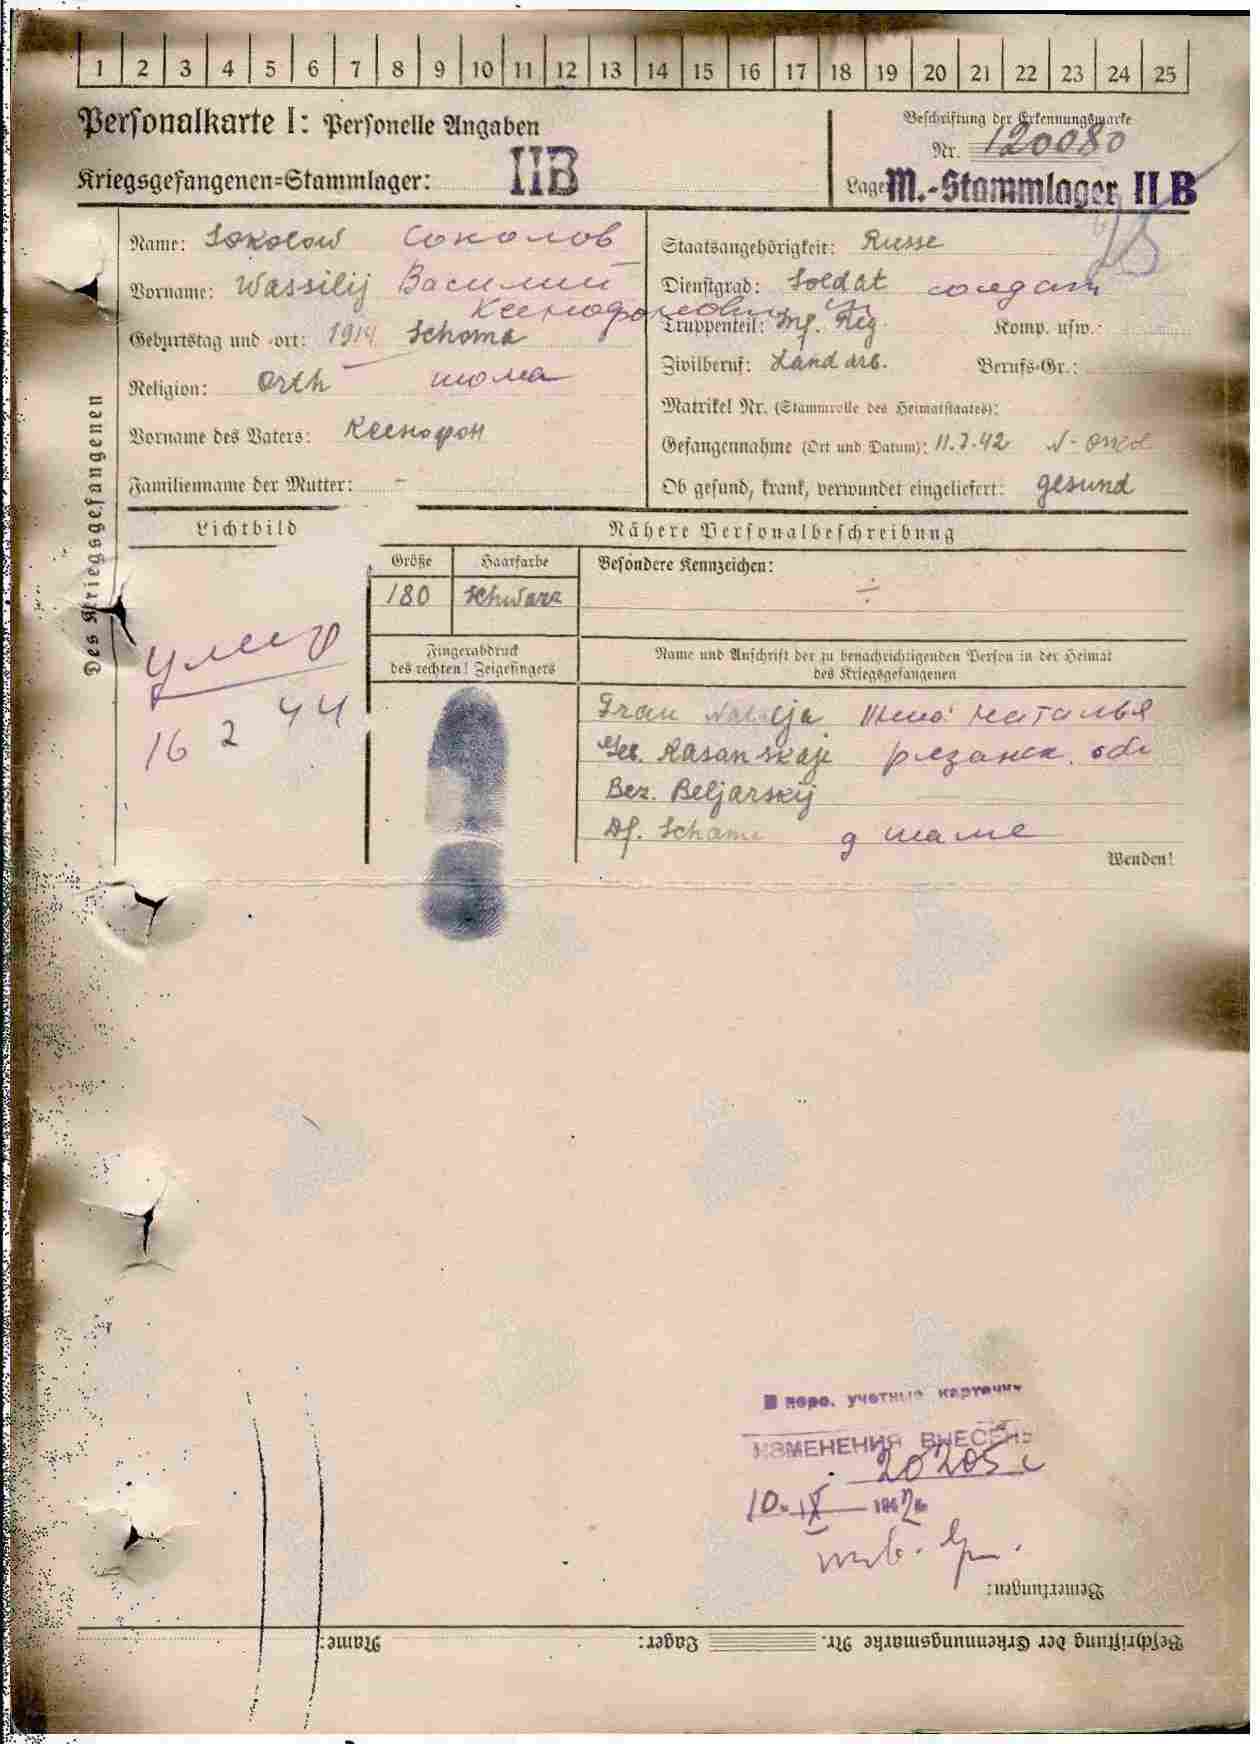 1 2 3 4 5 6 7 8 9 10 11 12 13 14 15 16 17 18 19 20 21 22 23 24 25
Personalkarte I: Personelle Angaben
Beschriftung der Erkennungsmarke
Nr. 120080
Kriegsgefangenen=Stammlager: II B
Lager: M.-Stammlager II B
Des Kriegsgefangenen
Name: Sokolow Соколов
Vorname: Wassilij Василий
Ксенофонович
Geburtstag und -ort: 1914 Schoma
Religion: Orth шома
Vorname des Vaters: Ксенофон
Familienname der Mutter: -
Staatsangehörigkeit: Russe
Dienstgrad: Soldat солдат
Truppenteil: Inf. Reg. Komp. usw.:
Zivilberuf: Landarb. Berufs-Gr.:
Matrikel Nr. (Stammrolle des Heimatstaates):
Gefangennahme (Ort und Datum): 11.7.42
Ob gesund, krank, verwundet eingeliefert: gesund
Lichtbild
Nähere Personalbeschreibung
Größe Haarfarbe Besondere Kennzeichen:
180 schwarz ÷
умер
16 2 44
Fingerabdruck
des rechten! Zeigefingers
Name und Anschrift der zu benachrichtigenden Person in der Heimat
des Kriegsgefangenen
Frau Natalja Наталья
Geb. Rasanskaje рязанск. обл
Bez. Beljarskij
Df. Schama д шаме
Wenden!
В перс. учетные карточки
ИЗМЕНЕНИЯ ВНЕСЕНЫ
20205
10. IX
Bemerkungen:
Beschriftung der Erkennungsmarke Nr. Lager: Name: